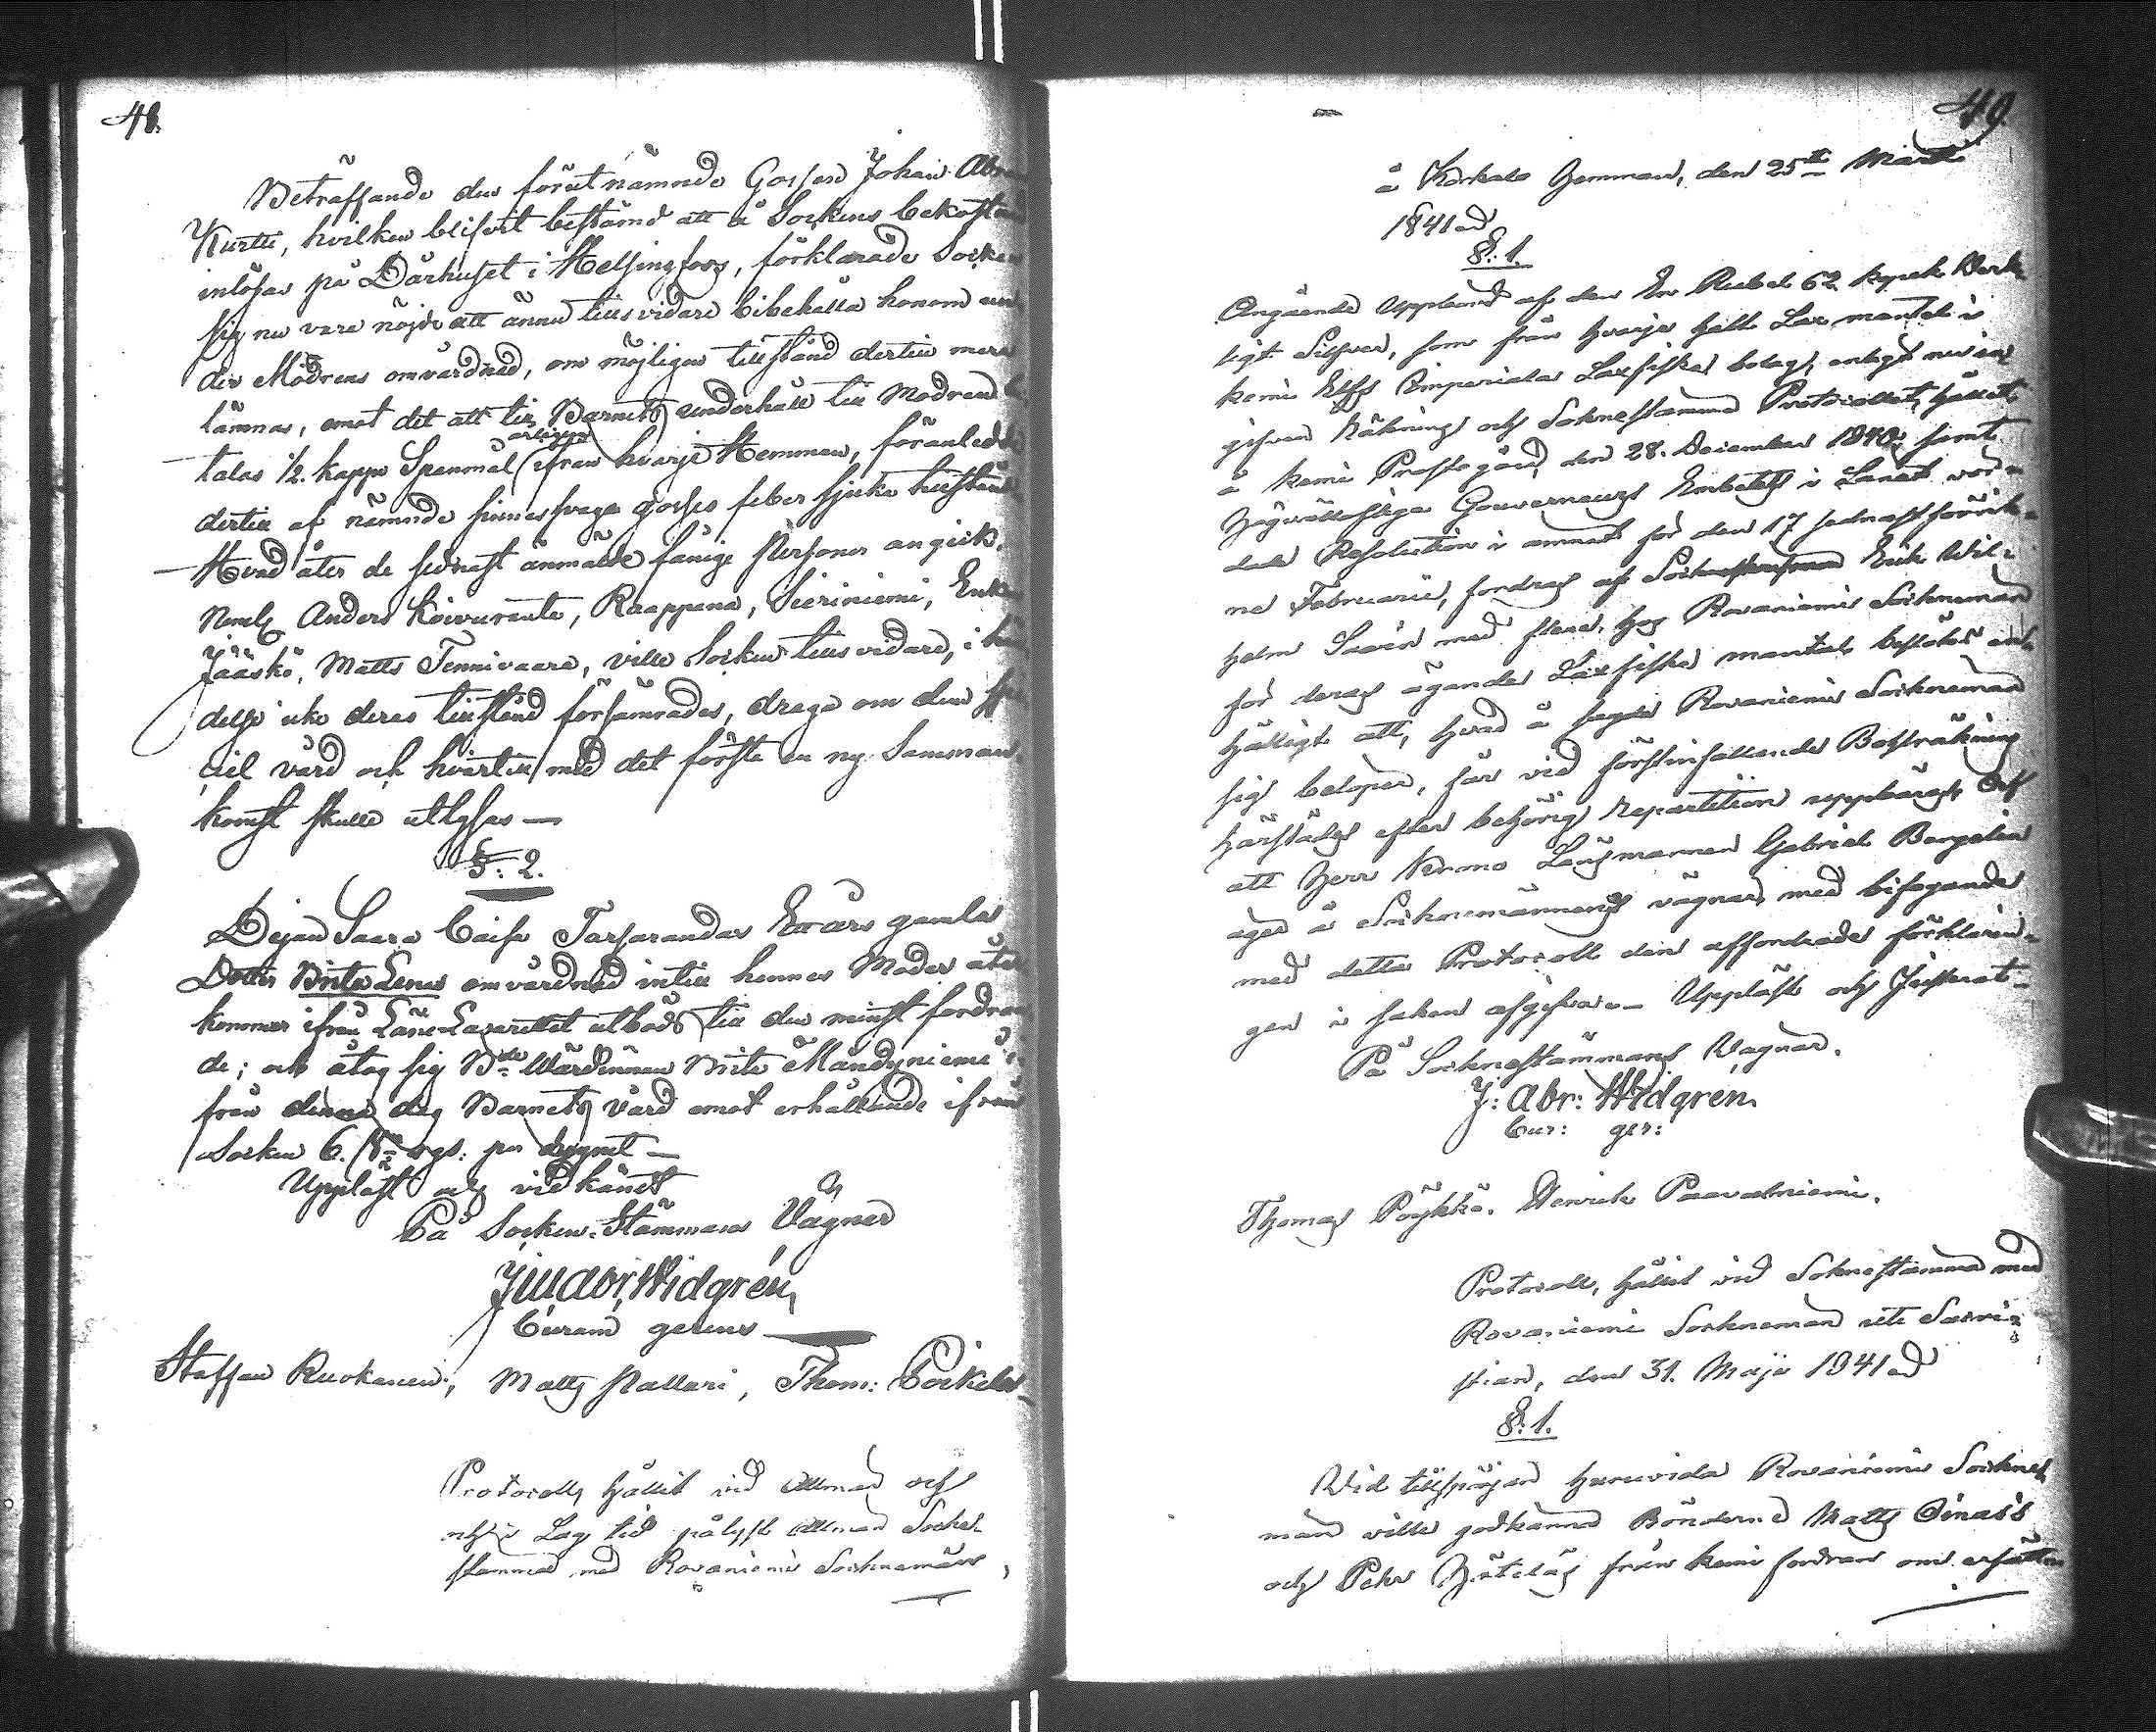 48.
Beträffande den förutnämnde Gossen Johan Abra
Kurtti, hvilken blifvit bestämd att å Sockens bekostn
inlösas på Dårhuset i Helsingfors, förklarade Socken
sig nu vara nöjde att ännu tills vidare bibehålla honom
der Modrens omvårdnad, om möjligen tillstånd dertill
lämnas, emot det att till Barnets underhåll till Modren
talas 1/2 kappe Spanmål årligen ifrån hvarje Hemman, föranledd
dertill af nämnde sinnessvaga gosses feber sjuka tillstånd
Hvad åter de sednast anmälde fånige Personer angick,
Neml Anders Koivuranta, Raappana, Sieriniemi, Enk
Jääskö, Matts Tennivaara, ville Socken tillsvidare, i hän
delse icke deras tillstånd försämrades, draga om dem spe
ciel vård och hvartill med det första en ny Samman
komst skulle utlysas —
§: 2.
Dejan Saara Caisa Tarsarandas Ett års gamla
Dotter Brita Lenas omvårdnad intill hennes Moder åter
kommer ifrån Läne Lazarettet utböds till den minst fordran
de; och åtog sig Bde Wärdinnan Brita Mändyniemi i
från denna dag Barnets vård emot erhållande ifrån
Socken 6. rgs: per dygnet —
Uppläst och vidkändt
På Socken-Stämmans Vägnar
Widgrén,
Curam gerens
Staffan Ruokanen, Matts Pallari, Thom: Poikela
Protocoll, hållit vid Allmän och
uti i Lag tid pålyst Allmän Sockne
stämma med Rovaniemi Socknemän,
49.
å Korkalo Hemman, den 25te Martii
1841
§: 1.
Angående Uppbörd af den En Rubel 62 kopek Verk-
ligt Silfver, som från hvarje helt Lax mantal i
Kemi Elfs Imperiala Laxfiske bolag, enligt nu in
gifven Räkning och Socknestämmo Protocollet, hållet
å Kemi Prestgård, den 28. December 1840, samt
Högvälloflige Gouverneurs Embetets i Länet med-
delte Resolution i ämnet för den 17 sednastförvik-
ne Februarii, fordras af Erik Wil-
helm Savén med flere, hos Rovaniemi Socknemän
för deras ägande Laxfiske mantal beslöts en-
hälligt att, hvad å sagde Rovaniemi Socknemän
sig belöper, får vid förstinfallande Bofsräkning
härstädes efter behörig repartition uppbäras och
att Herr Krono Länsmannen Gabriel Bergelin
äger å Socknemännens vägnar, med bifogande
med detta Protocoll den affordrade förklarin-
gen i saken afgifva. — Uppläst och Justerat —
På Socknestämmans Vägnar.
J: Abr: Widgren,
Cur: ger:
Thomas Pöykkö. Henrik Paavalniemi.
Protocoll, hållit vid Socknestämma med
Rovaniemi Socknemän uti Sacri-
stian, den 31. Maji 1841
§: 1.
Vid tillfrågan huruvida Rovaniemi Sockne
män ville godkänna Bönderne Matts Oinas's
och Pehr från Kemi fordran om ersättn